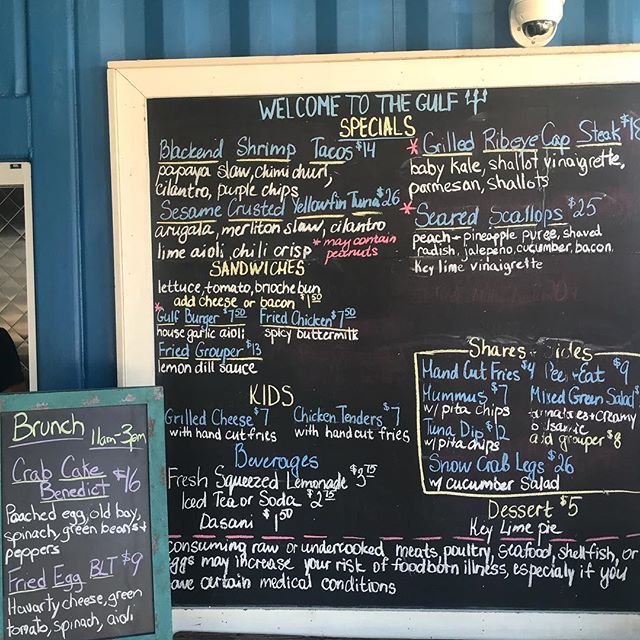 WELCOME TO THE GULF
SPECIALS
Blackend Shrimp Tacos $14
papaya slaw, chimi churi,
cilantro, purple chips
Sesame Crusted Yellowfin Tuna $26
arugala, merliton slaw, cilantro
lime aioli, chili crisp
* may contain
peanuts
* Grilled Ribeye Cap Steak $18
baby kale, shallot vinaigrette,
parmesan, shallots
* Seared Scallops $25
peach - pineapple puree, shaved
radish, jalepeno, cucumber, bacon,
Key lime vinaigrette
SANDWICHES
lettuce, tomato, brioche bun
add cheese or bacon $1.50
* Gulf Burger $7.50
house garlic aioli
Fried Chicken $7.50
spicy buttermilk
Fried Grouper $13
lemon dill sauce
KIDS
Grilled Cheese $7
with hand cut fries
Chicken Tenders $7
with hand cut fries
Beverages
Fresh Squeezed Lemonade $3.75
Iced Tea or Soda $2.75
Dasani $1.50
Shares + Sides
Hand Cut Fries $4
Hummus $7
w/ pita chips
Tuna Dip $12
w/ pita chips
Snow Crab Legs $26
w/ cucumber salad
Peel + Eat $9
Mixed Green Salad $
tomatoes + creamy
balsamic
add grouper $8
Dessert $5
Key Lime pie
consuming raw or undercooked meats, poultry, seafood, shellfish, or
eggs may increase your risk of foodborn illness, especialy if you
have certain medical conditions
Brunch 11am-3pm
Crab Cake $16
Benedict
Poached egg, old bay,
spinach, green beans +
peppers
Fried Egg BLT $9
Havarty cheese, green
tomato, spinach, aioli